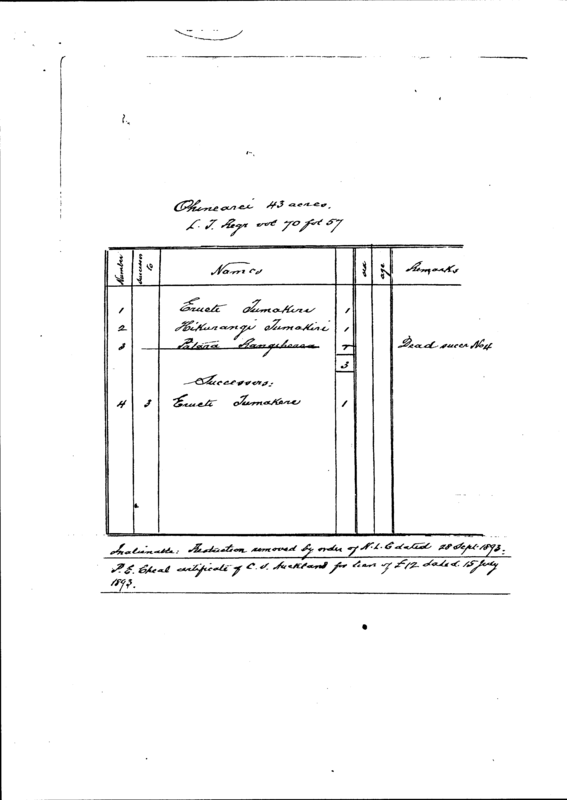 Ohinearei 43 acres.
L. T. Regr vol 70 fol 57
Number Successor to Names sex age Remarks
1 Erueti Tumakere 1
2 Hikurangi Tumakiri 1
3 Patara 1 Dead succr No 4
3
Successors:
4 3 Erueti Tumakere 1
Inalienable: Restriction removed by order of N.L.C dated 28 Sept. 1893.
P. E. Cheal certificate of C. S. Auckland for lien of £12 dated 15 July
1893.